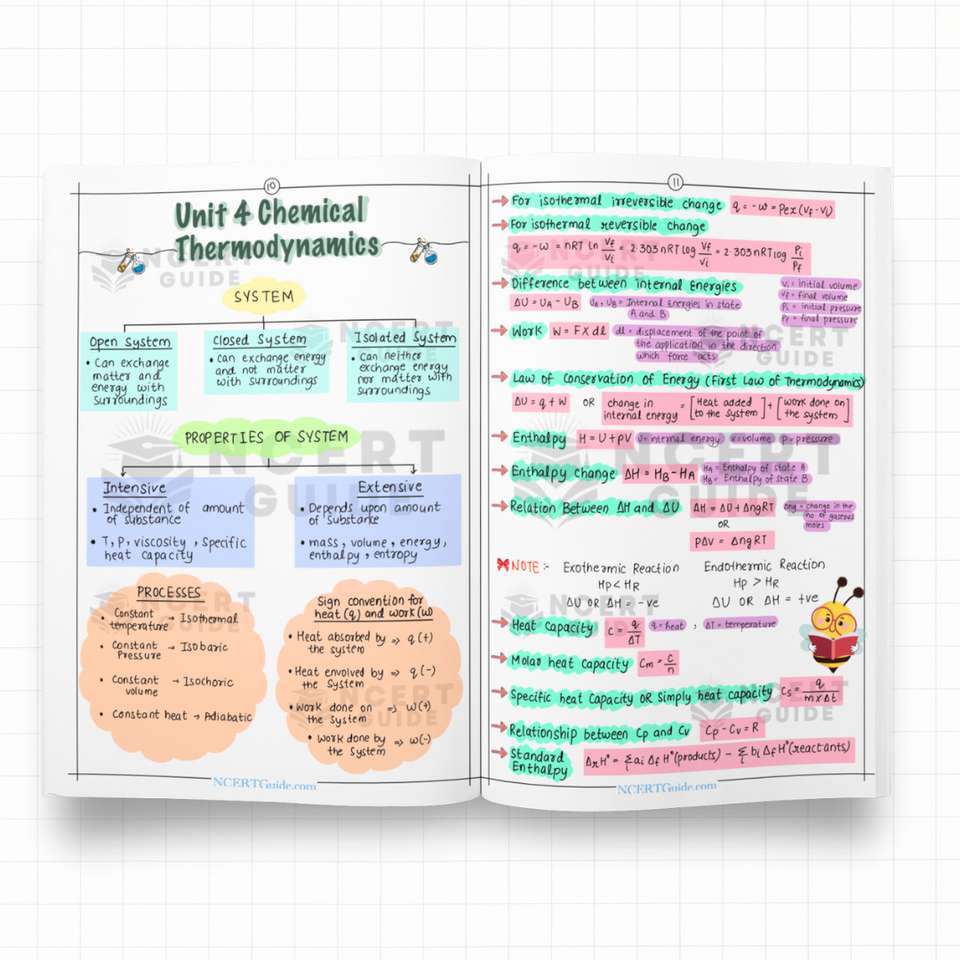 10
Unit 4 Chemical
Thermodynamics
SYSTEM
Open System
• Can exchange
matter and
energy with
surroundings
Closed System
• can exchange energy
and not matter
with surroundings
Isolated System
• Can neither
exchange energy
nor matter with
surroundings
PROPERTIES OF SYSTEM
Intensive
• Independent of amount
of substance
• T, P, viscosity, Specific
heat capacity
Extensive
• Depends upon amount
of substance
• mass, volume, energy,
enthalpy, entropy
PROCESSES
• Constant
temperature → Isothermal
• Constant
Pressure → Isobaric
• Constant
volume → Isochoric
• Constant heat → Adiabatic
Sign convention for
heat (q) and work (w)
• Heat absorbed by => q (+)
the system
• Heat envolved by => q (-)
the System
• Work done on => w(+)
the System
• Work done by => w(-)
the System
NCERTGuide.com
11
→ For isothermal irreversible change q = -w = Pex (Vf - Vi)
→ For isothermal reversible change
q = -w = nRT ln Vf/Vi = 2.303 nRT log Vf/Vi = 2.303 nRT log Pi/Pf
→ Difference between internal Energies
ΔU = UA - UB UA, UB = Internal Energies in state
A and B
Vi = Initial volume
Vf = final volume
Pi = initial pressure
Pf = final pressure
→ Work W = F X dl dl = displacement of the point of
the application in the direction
which force acts
→ Law of Conservation of Energy (First Law of Thermodynamics)
ΔU = q + W OR change in internal energy = [Heat added to the system] + [work done on the system]
→ Enthalpy H = U + PV U = internal energy V = volume P = pressure
→ Enthalpy change ΔH = HB - HA HA = Enthalpy of state A
HB = Enthalpy of state B
→ Relation Between ΔH and ΔU ΔH = ΔU + ΔngRT Δng = change in the
no of gaseous
moles
OR
PΔV = ΔngRT
NOTE :- Exothermic Reaction
HP < HR
ΔU OR ΔH = -ve
Endothermic Reaction
HP > HR
ΔU OR ΔH = +ve
→ Heat capacity C = q/ΔT q = heat , ΔT = temperature
→ Molar heat capacity Cm = C/n
→ Specific heat Capacity OR Simply heat capacity Cs = q/m x Δt
→ Relationship between Cp and Cv Cp - Cv = R
→ Standard
Enthalpy ΔrH° = Σai ΔfH°(products) - Σbi ΔfH°(reactants)
NCERTGuide.com
NCERT
GUIDE
NCERT
GUIDE
NCERT
GUIDE
NCERT
GUIDE
NCERT
GUIDE
NCERT
GUIDE